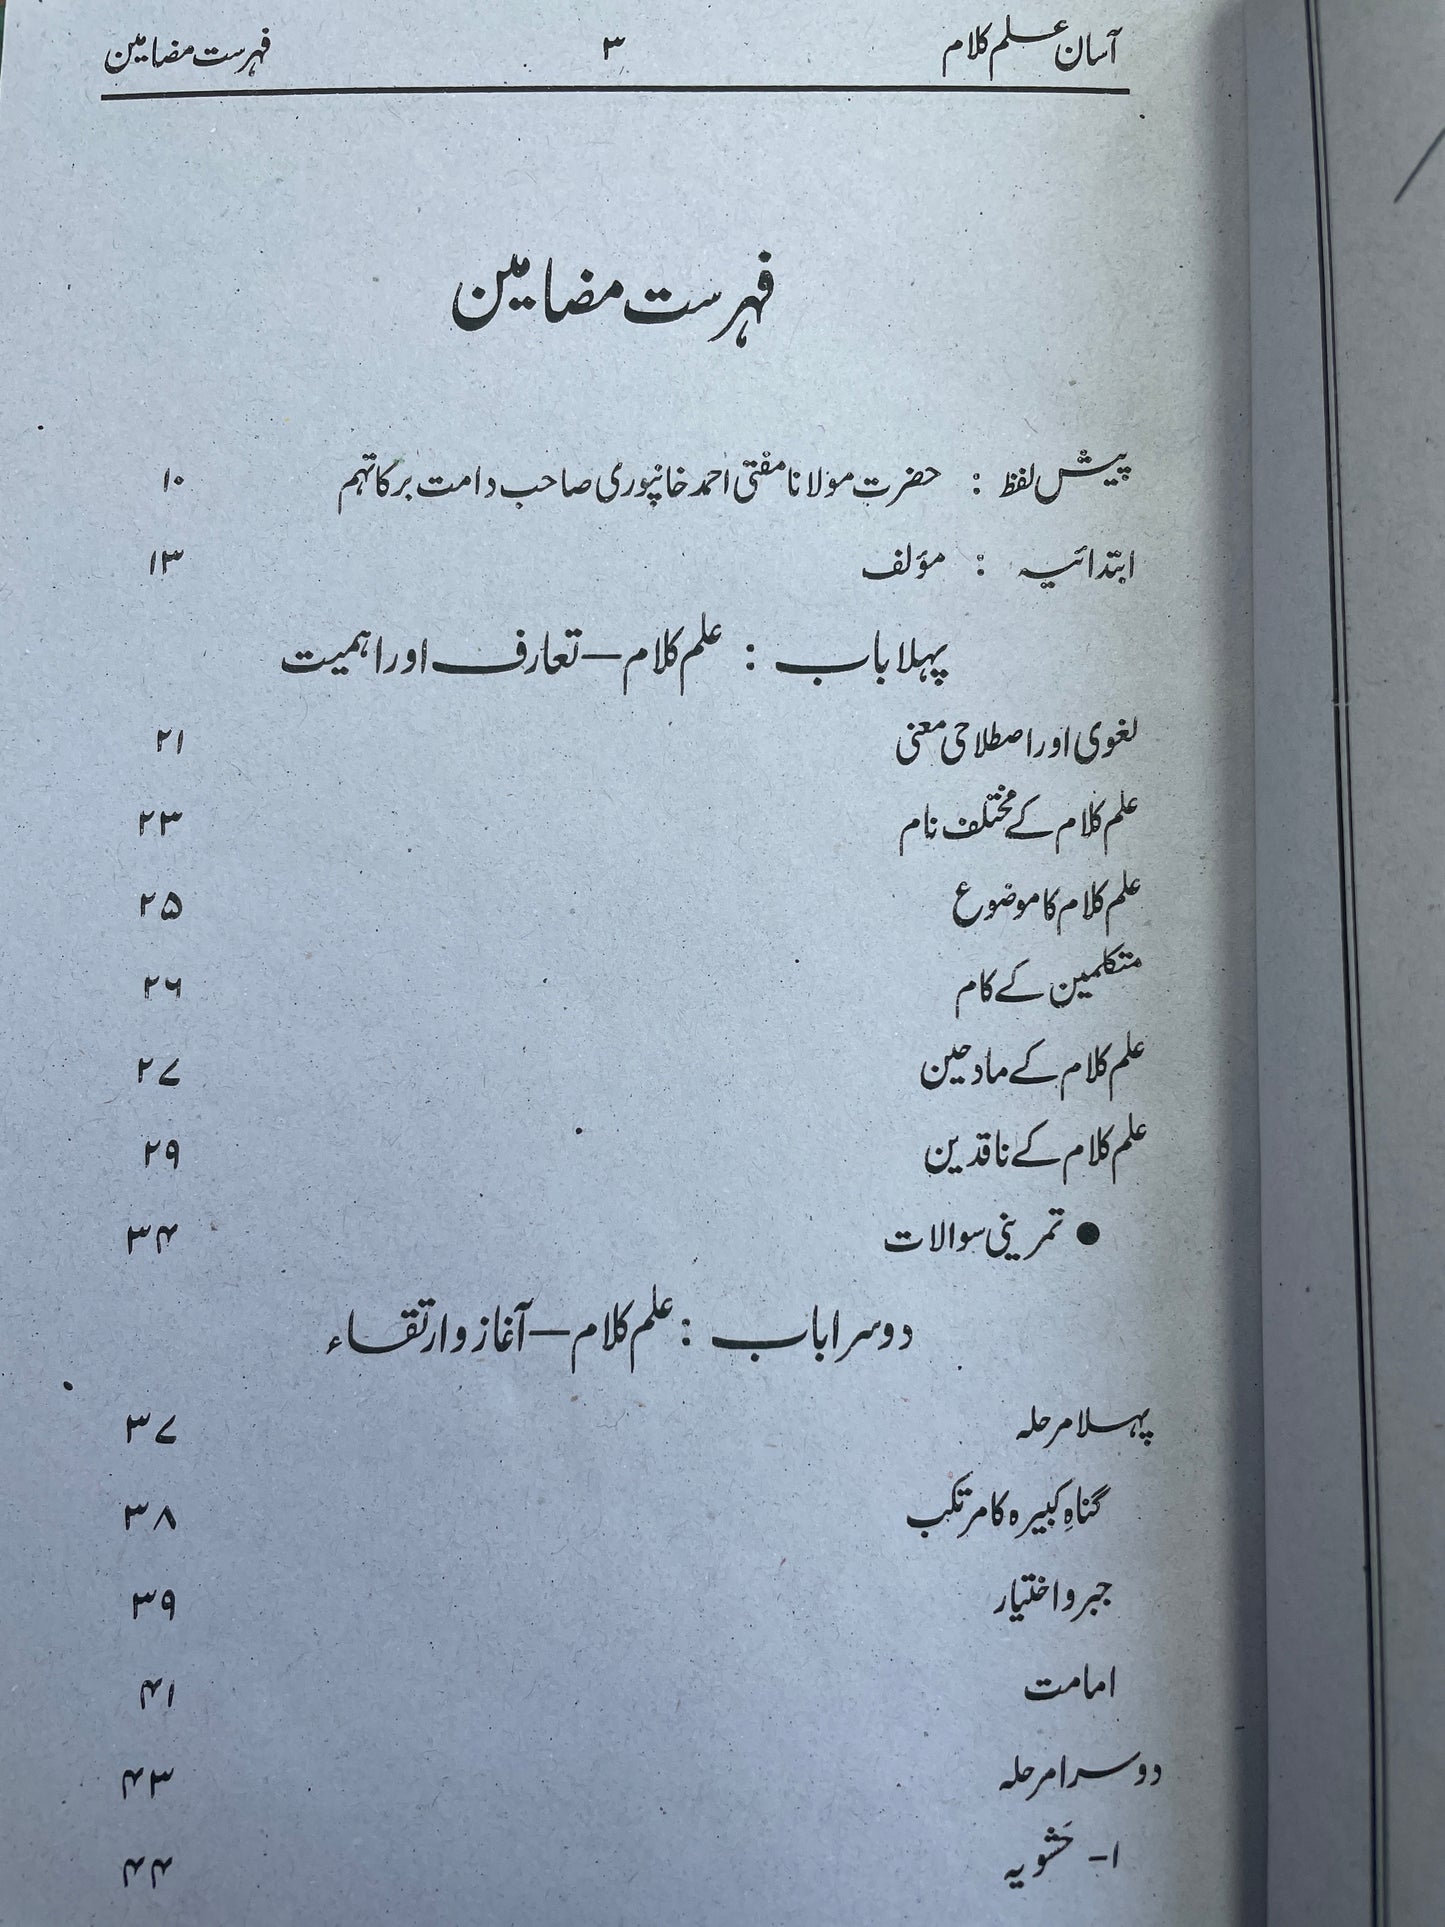 آسان علم کلام ۳ فہرست مضامین
فہرست مضامین
پیش لفظ : حضرت مولانا مفتی احمد خانپوری صاحب دامت برکاتہم ۱۰
ابتدائیہ : مؤلف ۱۳
پہلا باب : علم کلام – تعارف اور اہمیت
لغوی اور اصطلاحی معنی ۲۱
علم کلام کے مختلف نام ۲۳
علم کلام کا موضوع ۲۵
متکلمین کے کام ۲۶
علم کلام کے مادحین ۲۷
علم کلام کے ناقدین ۲۹
● تمرینی سوالات ۳۴
دوسرا باب : علم کلام – آغاز و ارتقاء
پہلا مرحلہ ۳۷
گناہِ کبیرہ کا مرتکب ۳۸
جبر و اختیار ۳۹
امامت ۴۱
دوسرا مرحلہ ۴۳
۱- حَشْویہ ۴۴